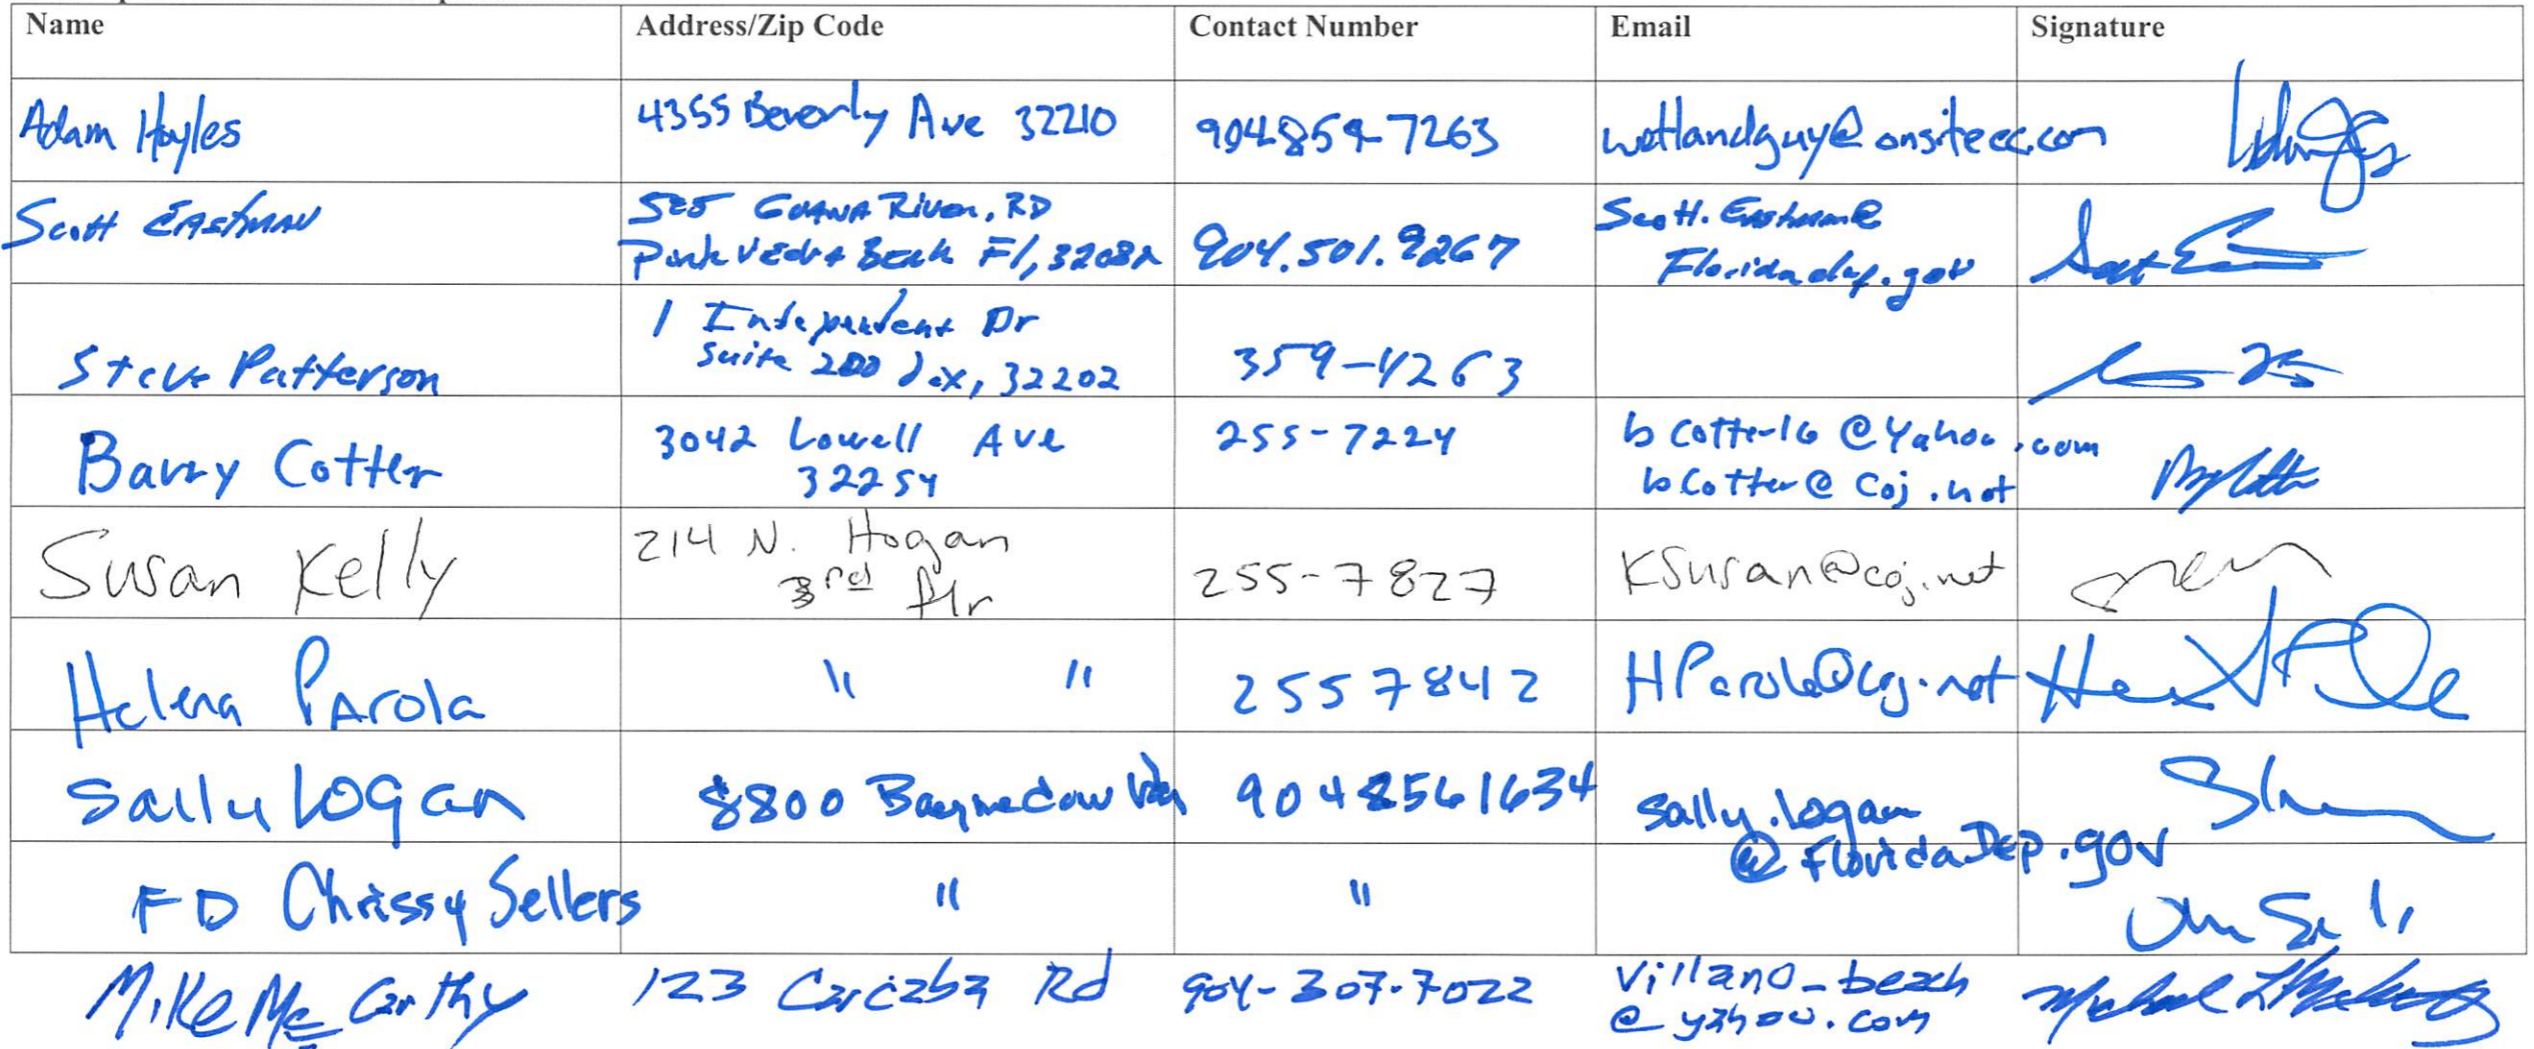 Name Address/Zip Code Contact Number Email Signature
Adam Hoyles 4355 Beverly Ave 32210 904-859-7263 wetlandguy@onsitecc.com
Scott Eastman 505 Guana River, RD 904.501.9267 Scott.Eastman@
Ponte Vedra Beach Fl, 32082 Floridadep.gov
1 Independent Dr
Steve Patterson Suite 200 Jax, 32202 359-4263
Barry Cotter 3042 Lowell Ave 255-7224 bcotter16@Yahoo.com
32254 bCotter@Coj.net
Susan Kelly 214 N. Hogan 255-7827 KSusan@coj.net
3rd flr
Helena Parola " " 2557842 HParola@coj.net
Sally Logan 8800 Baymeadow Way 9048561634 sally.logan
@FloridaDep.gov
FD Chrissy Sellers " "
Mike McCarthy 123 Carcaba Rd 904-307-7022 Villano_beach
@yahoo.com